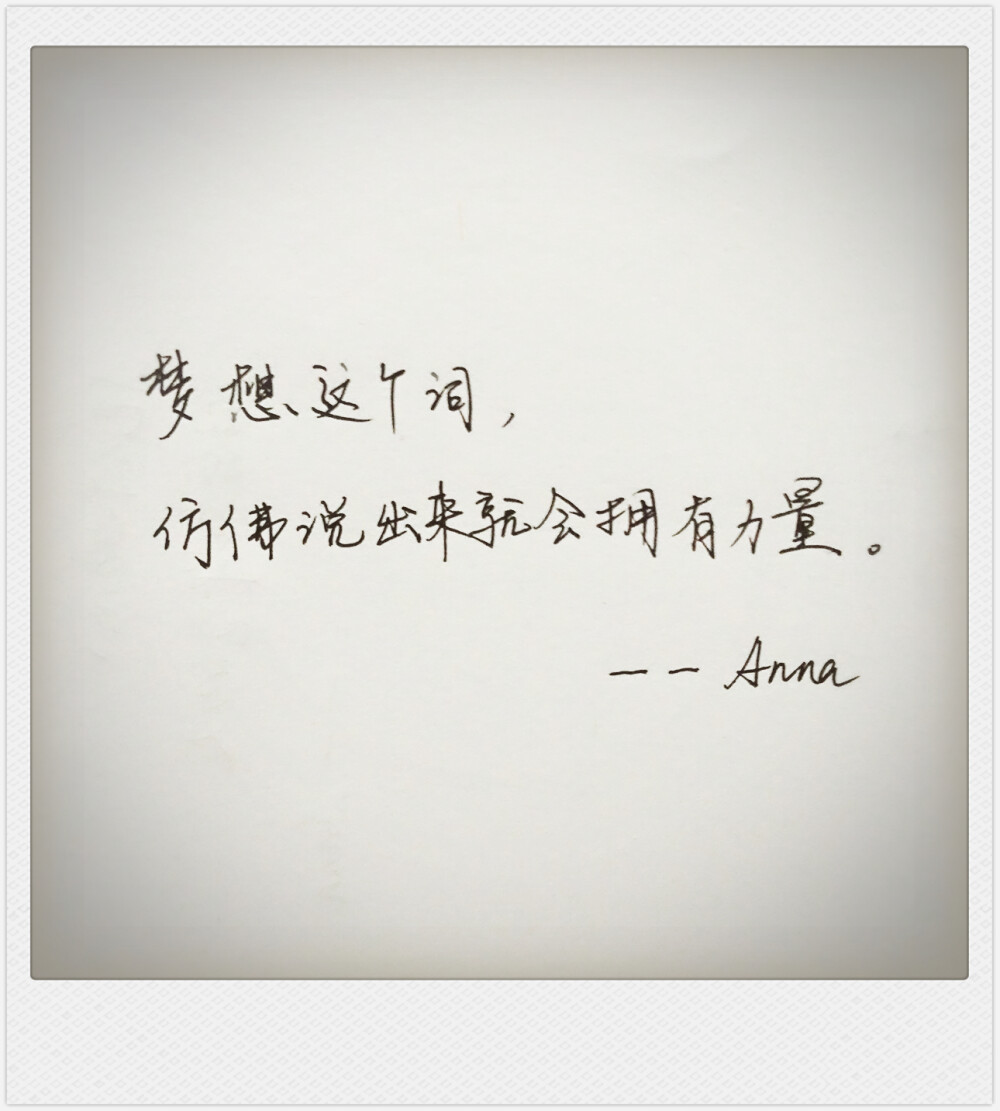 梦想这个词，
仿佛说出来就会拥有力量。
-- Anna